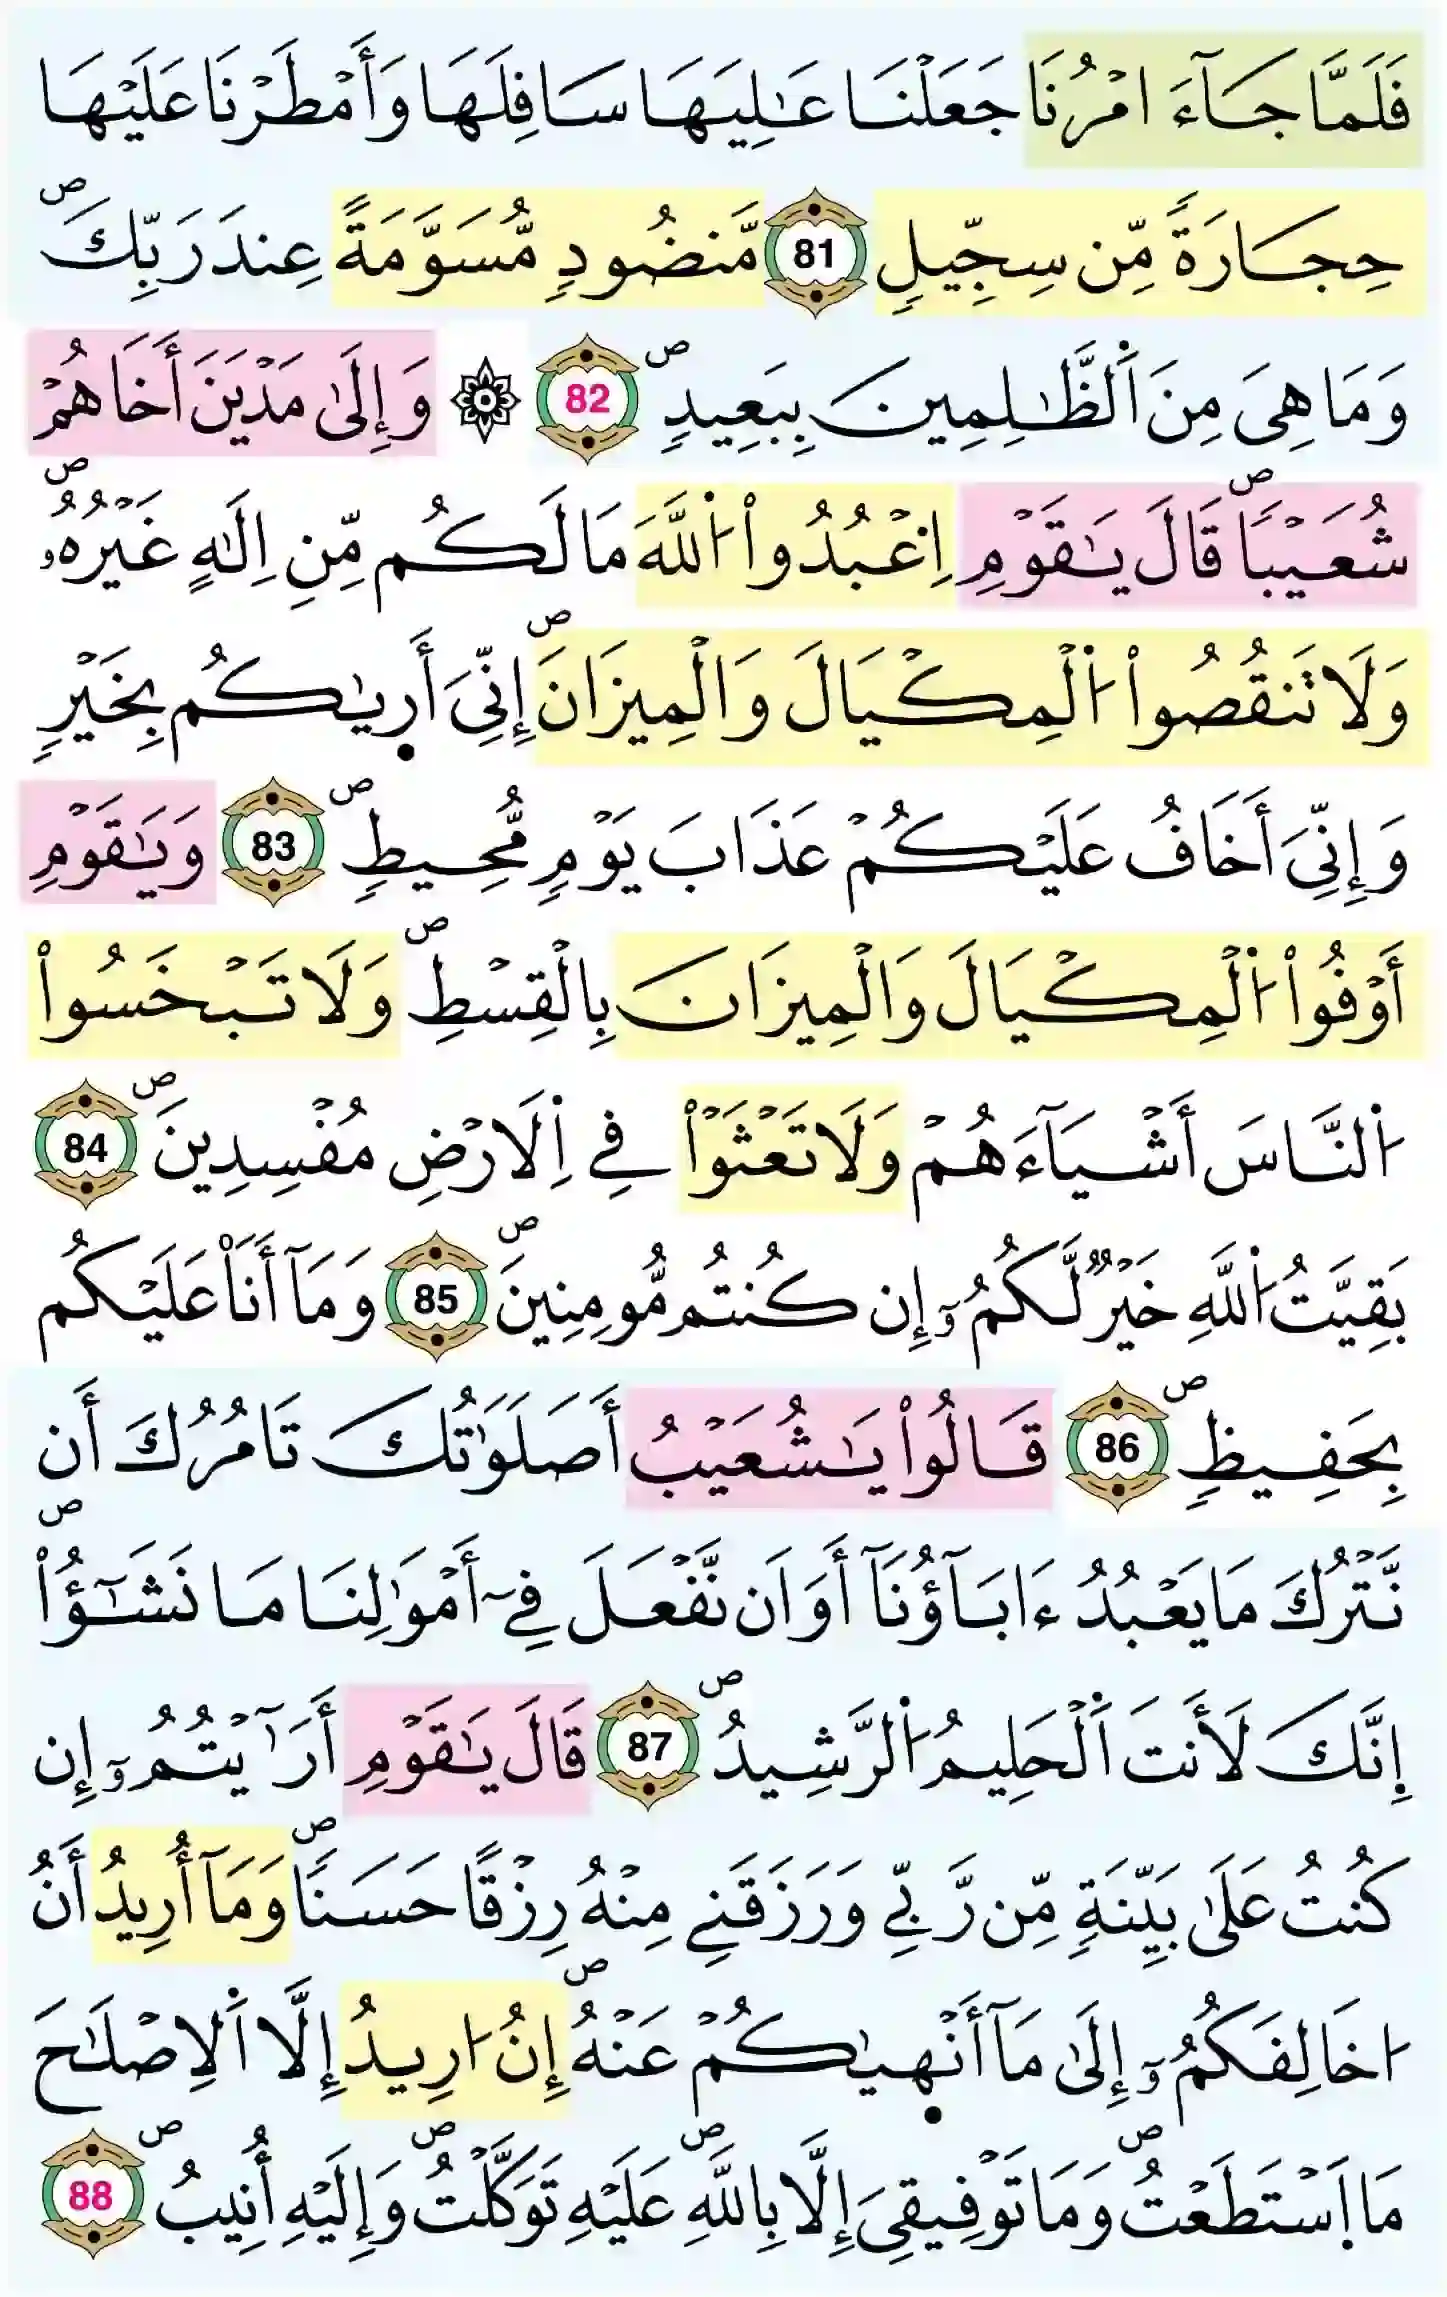 فَلَمَّا جَآءَ امْرُنَا جَعَلْنَا عَٰلِيَهَا سَافِلَهَا وَأَمْطَرْنَا عَلَيْهَا
حِجَارَةً مِّن سِجِّيلٍ 81 مَّنضُودٍ مُّسَوَّمَةً عِندَ رَبِّكَۖ
وَمَا هِىَ مِنَ اَ۬لظَّٰلِمِينَ بِبَعِيدٍۖ 82 ۞ وَإِلَىٰ مَدْيَنَ أَخَاهُمْ
شُعَيْباٗۖ قَالَ يَٰقَوْمِ اِ۟عْبُدُواْ اُ۬للَّهَ مَا لَكُم مِّنِ اِلَٰهٍ غَيْرُهُۥۖ
وَلَا تَنقُصُواْ اُ۬لْمِكْيَالَ وَالْمِيزَانَۖ إِنِّىَ أَر۪يٰكُم بِخَيْرٍ
وَإِنِّىَ أَخَافُ عَلَيْكُمْ عَذَابَ يَوْمٍ مُّحِيطٍۖ 83 وَيَٰقَوْمِ
أَوْفُواْ اُ۬لْمِكْيَالَ وَالْمِيزَانَ بِالْقِسْطِۖ وَلَا تَبْخَسُواْ
اُ۬لنَّاسَ أَشْيَآءَهُمْ وَلَا تَعْثَوْاْ فِے اِ۬لَارْضِ مُفْسِدِينَۖ 84
بَقِيَّتُ اُ۬للَّهِ خَيْرٌ لَّكُمُۥٓ إِن كُنتُم مُّومِنِينَۖ 85 وَمَآ أَنَا۠ عَلَيْكُم
بِحَفِيظٍۖ 86 قَالُواْ يَٰشُعَيْبُ أَصَلَوَٰتُكَ تَامُرُكَ أَن
نَّتْرُكَ مَا يَعْبُدُ ءَابَآؤُنَآ أَوَ اَن نَّفْعَلَ فِےٓ أَمْوَٰلِنَا مَا نَشَٰٓؤُاْۖ
إِنَّكَ لَأَنتَ اَ۬لْحَلِيمُ اُ۬لرَّشِيدُۖ 87 قَالَ يَٰقَوْمِ أَرَٰٓيْتُمُۥٓ إِن
كُنتُ عَلَىٰ بَيِّنَةٍ مِّن رَّبِّے وَرَزَقَنِے مِنْهُ رِزْقًا حَسَناٗۖ وَمَآ أُرِيدُ أَنُ
اخَالِفَكُمُۥٓ إِلَىٰ مَآ أَنْه۪يٰكُمْ عَنْهُۖ إِنُ ارِيدُ إِلَّا اَ۬لِاصْلَٰحَ
مَا اَ۪سْتَطَعْتُۖ وَمَا تَوْفِيقِىَ إِلَّا بِاللَّهِۖ عَلَيْهِ تَوَكَّلْتُۖ وَإِلَيْهِ أُنِيبُۖ 88